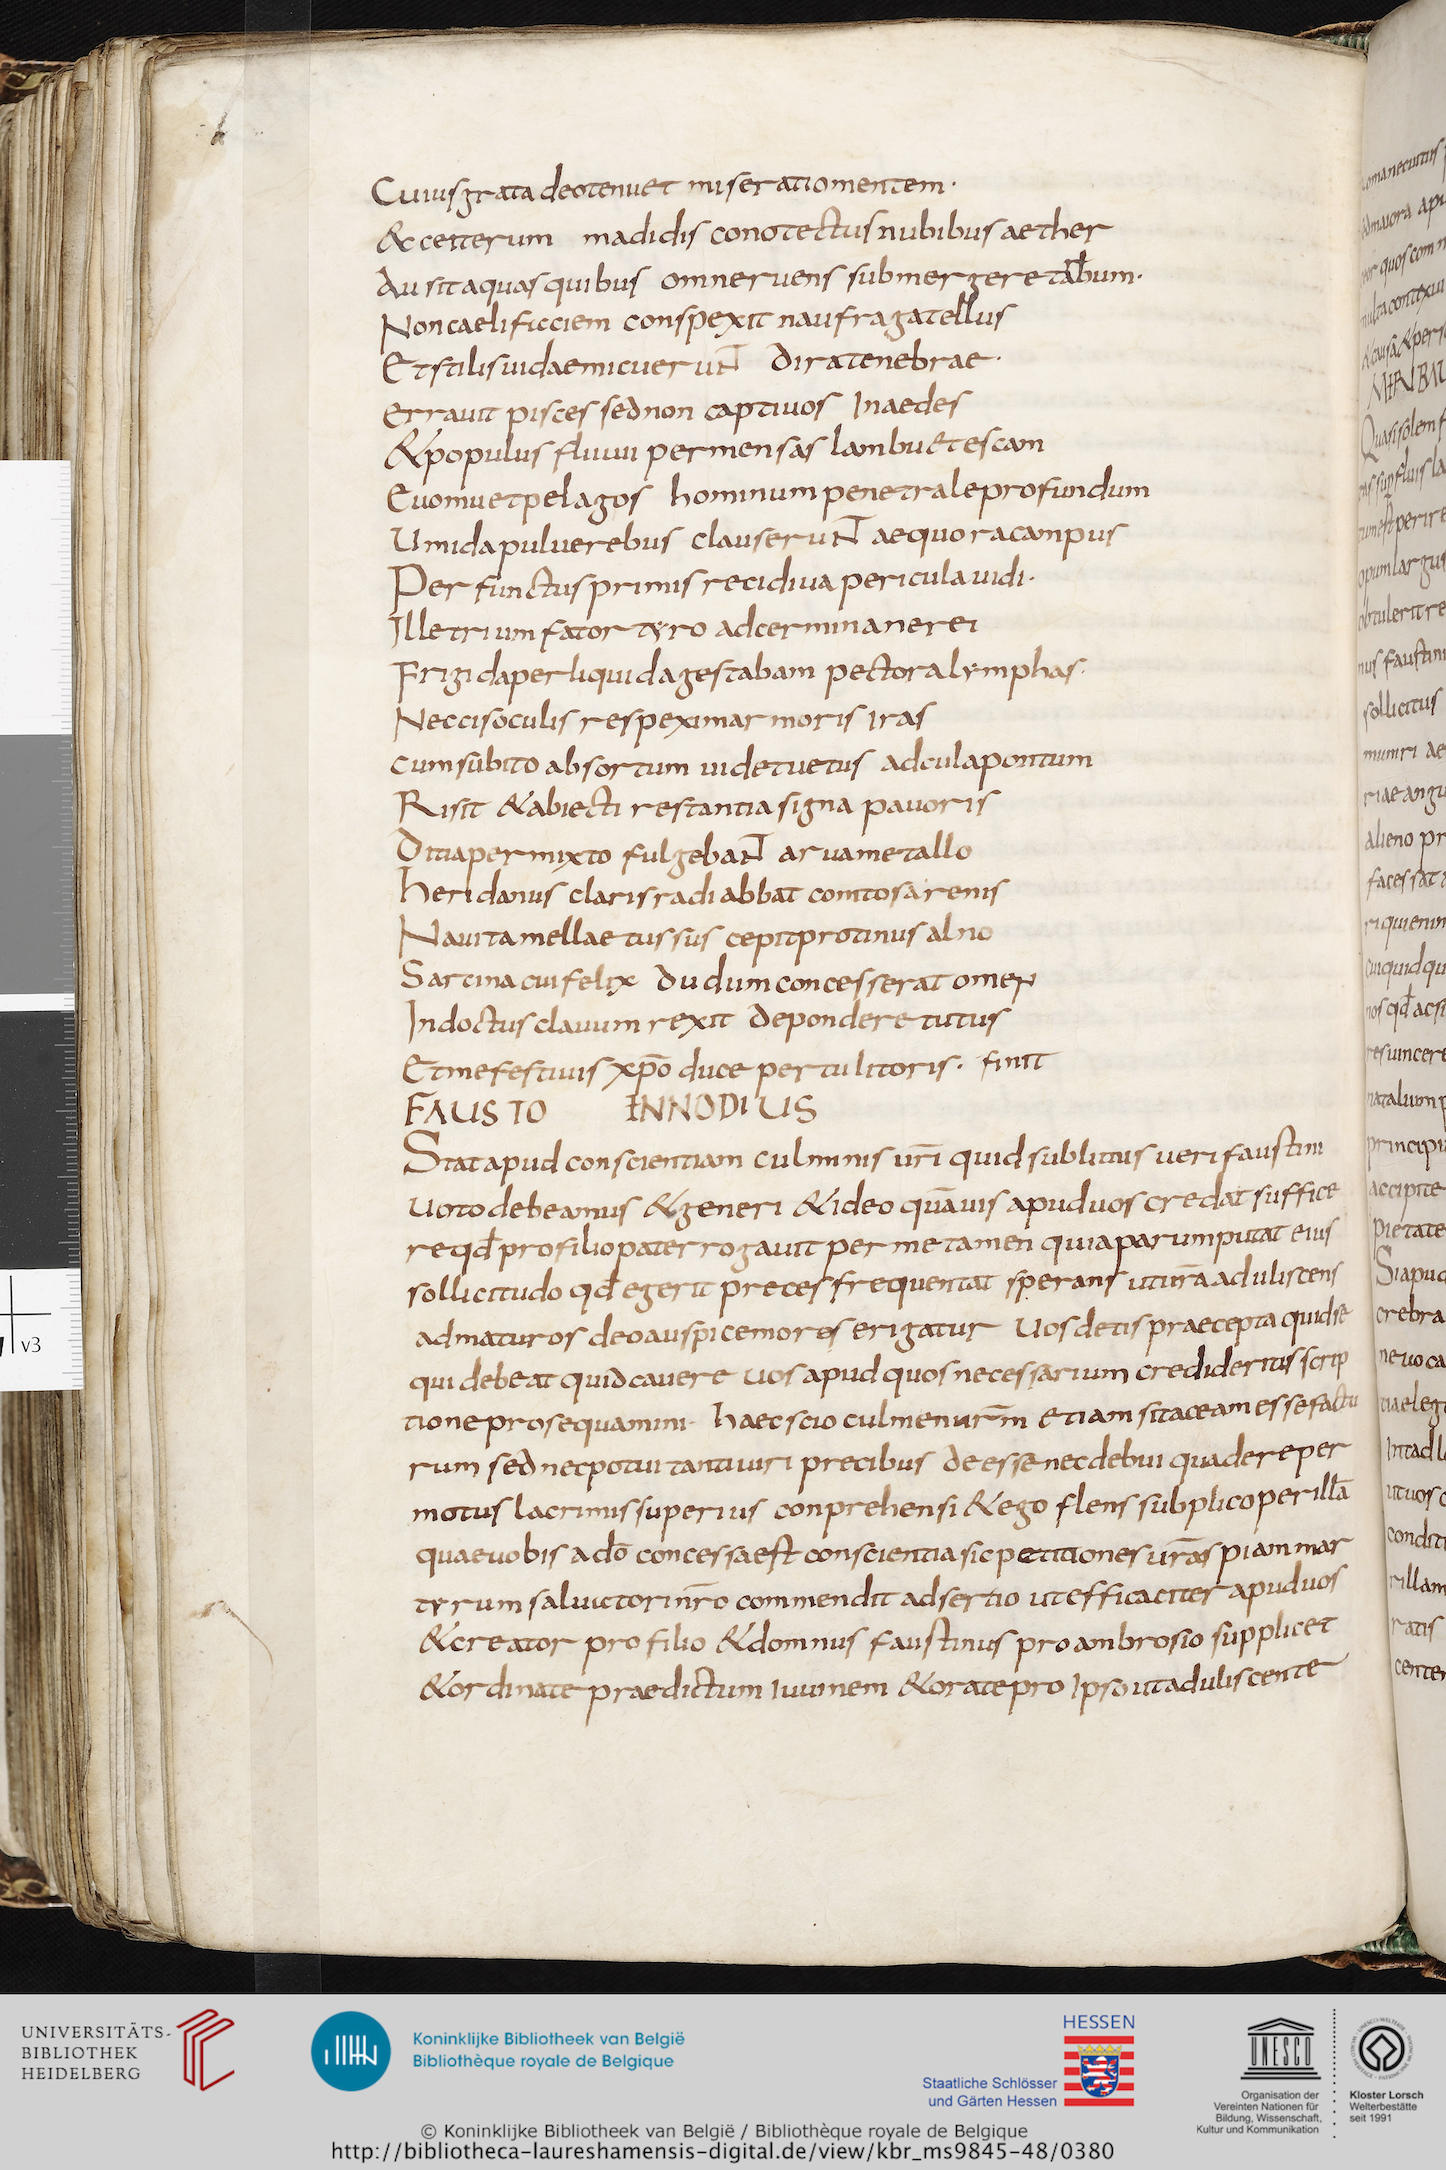 Cuiusgrata deotenuet miseratiomentem·
&ceterum madidis conotectusnubibus aether
Ausitaquas quibus omneruens submergeretalbum·
Noncaelificciem conspexit naufragatellus
Etstilisuidaemicuerunt diratenebrae·
Errauit pisces sednon captiuos Inaedes
&populus fluuii permensas lambuetescam
Euomuetpelagos hominumpenetraleprofundum
Umidapuluerebus clauserunt aequoracampus
Perfunctusprimis recidiua periculauidi·
Illetriumfator tyro adcerminanerei
Frigidaperliquidagestabam pectoralymphas·
Neccisoculis respeximarmoris iras
cumsubito absortum uidetuetus adculapontum
Risit &abiecti restantiasigna pauoris
Ditiapermixto fulgebant aruametallo
heridanus clarisradiabbat comtosarenis
Nauitamellaetussus cepitprotinus alno
Sarcina cuifelix dudumconcesserat omen
Indoctusclauum rexit depondere tutus
Etmefestiuis xp̄o duce pertulitoris· finit
FAUSTO INNODIUS
Statapud conscientiam culminis ur̄i quid sublimus ueri faustini
uotodebeamus &generi &ideo quāuis apuduos credat suffice
reqd̄ profiliopater rogauit per me tamen quiaparumputat eius
sollicitudo qd̄ egerit preces frequentat sperans utin̄a aduliscens
admaturos deoauspicemores erigatur Uosdetis praecepta quidse
qui debeat quidcauere uos apud quosnecessarium credideritis scrip
tioneprosequamini· haecscio culmenur̄m etiamsitaceam essefactu
rum sed necpotui tantiuiri precibus deessenecdebui quadereper
motus lacrimissuperius conprehensi &ego flens subplicoperillā
quaeuobis adō concessaest conscientia sicpetitiones ur̄as piammar
tyrumsaluictorinr̄o commendit adsertio utefficaciter apuduos
&creator pro filio &domnus faustinus proambrosio supplicet
&ordinate praedictum iuuinem &oratepro Ipso utaduliscente
v3
UNIVERSITÄTS-
BIBLIOTHEK
HEIDELBERG
Koninklijke Bibliotheek van België
Bibliothèque royale de Belgique
HESSEN
Staatliche Schlösser
und Gärten Hessen
UNESCO
Organisation der
Vereinten Nationen für
Bildung, Wissenschaft,
Kultur und Kommunikation
Kloster Lorsch
Welterbestätte
seit 1991
© Koninklijke Bibliotheek van België / Bibliothèque royale de Belgique
http://bibliotheca-laureshamensis-digital.de/view/kbr_ms9845-48/0380